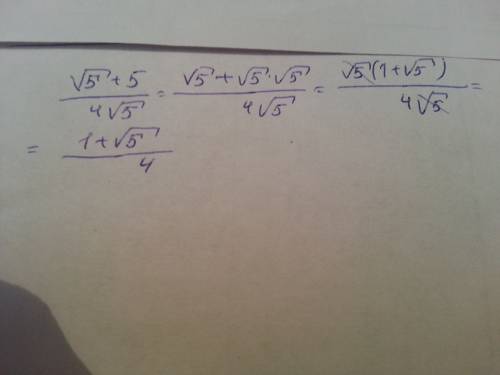 (√5 + 5)/(4√5) = (√5 + √5 · √5)/(4√5) = (√5(1 + √5))/(4√5) =
= (1 + √5)/4